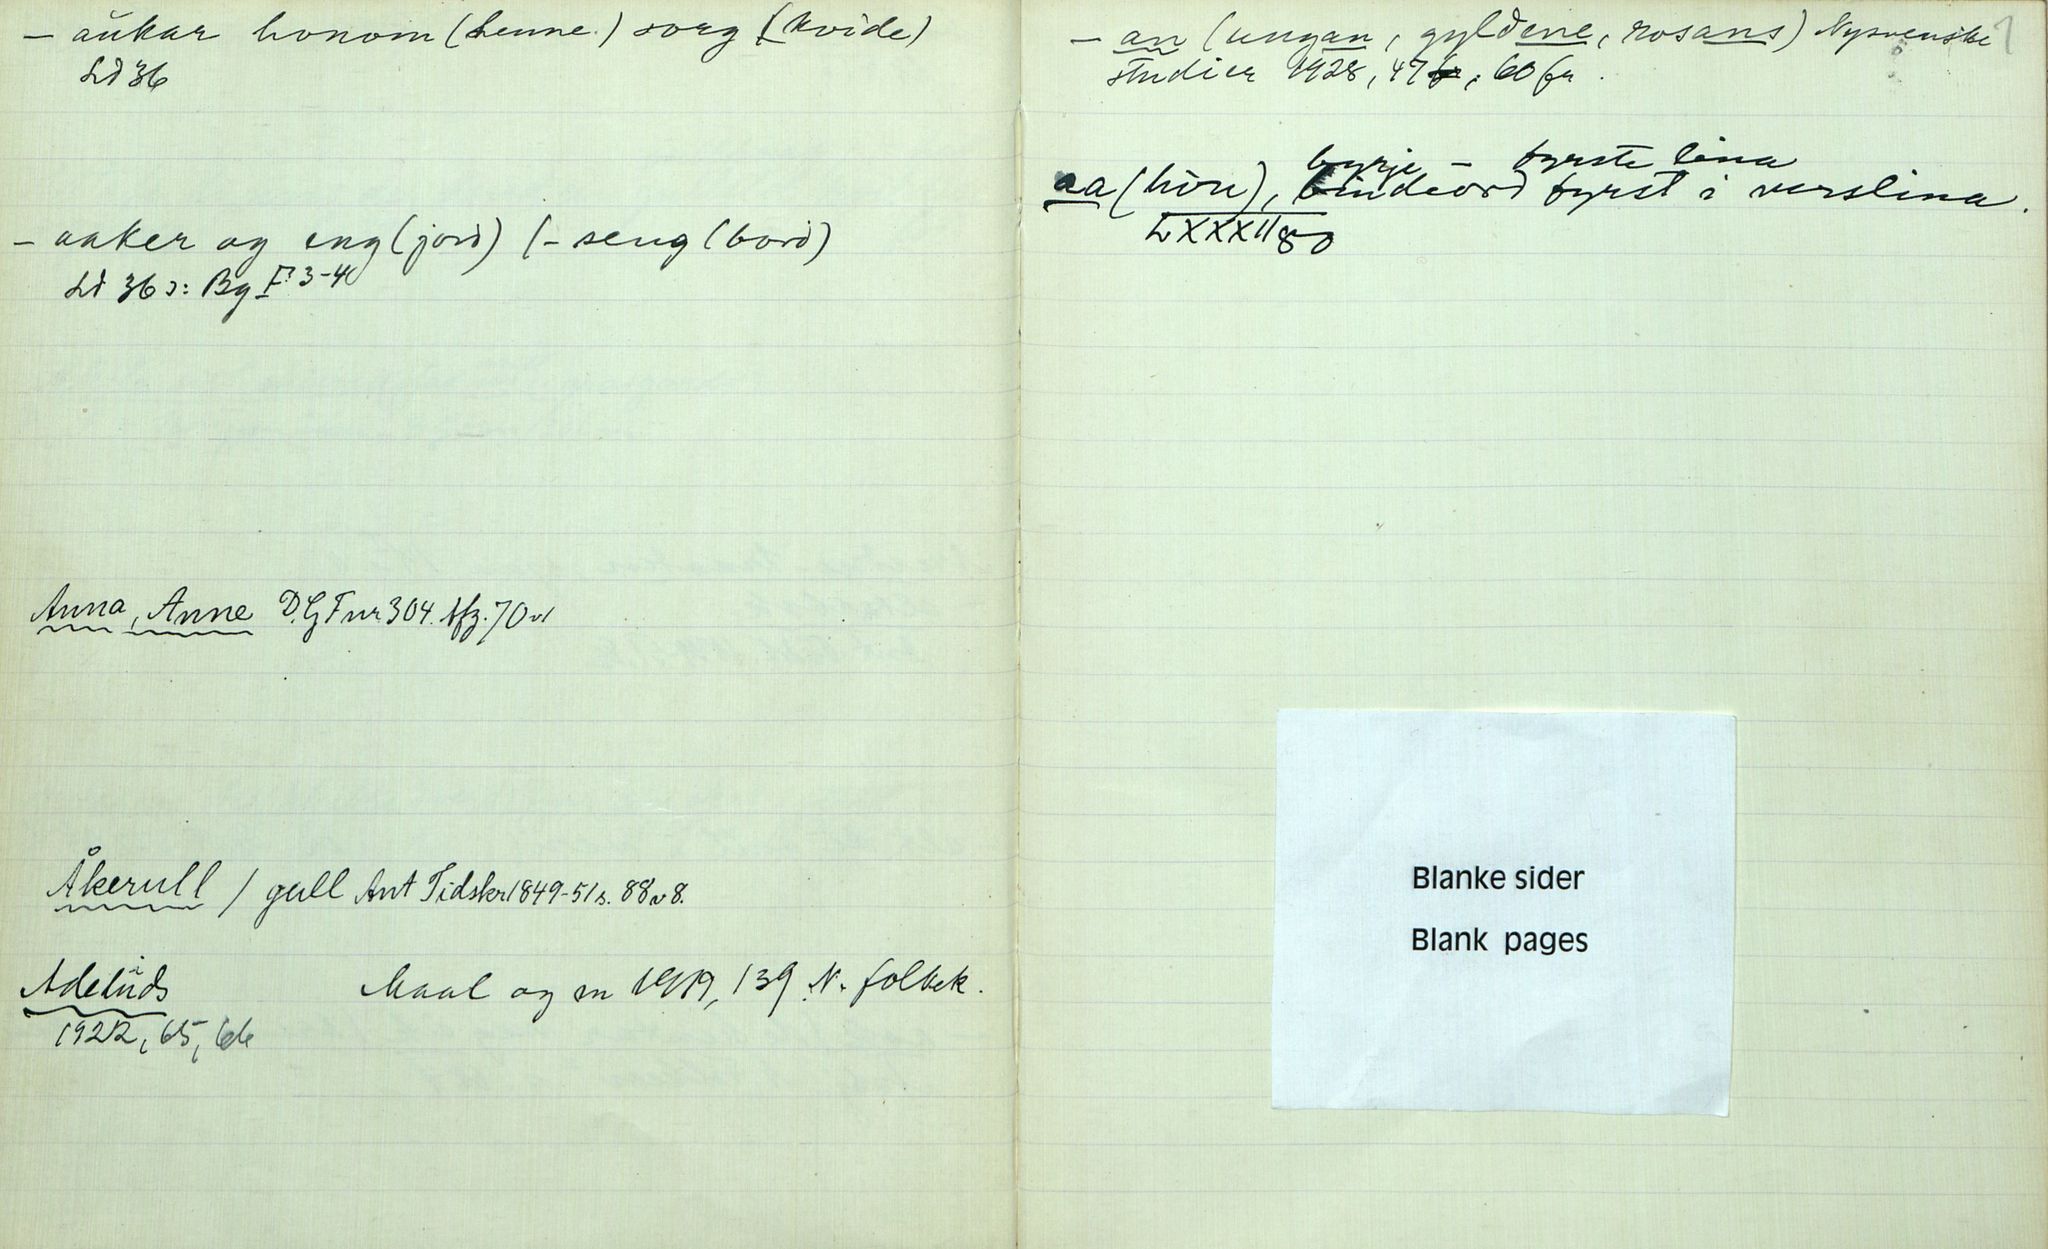 – aukar honom (henne) sorg (kvide)
Ld 36
– aaker og eng (jord) /– seng (bord)
Ld 36 ɔ: Bg I 3-4
Anna, Anne DGF nr 304. Afz. 70
Åkerull / gull Ant Tidskr 1849-51 s. 88 v 8.
Adelúds Maal og m 1919, 139 N. folkek.
1922, 65, 66
– an (ungan, gyldene, rosans) Nysvenske
studier 1928, 47, 60 fr.
byrje – fyrste lina
aa (hòre), bindeord fyrst i verslina.
LXXXII 80
Blanke sider
Blank pages